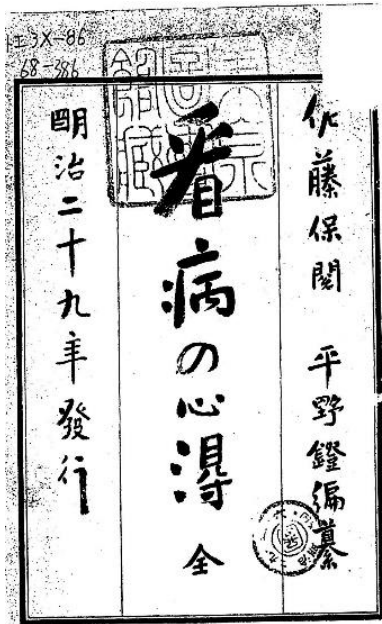 エ3X-86
68-386
佐藤保閲 平野鐙編纂
看病の心得 全
明治二十九年發行